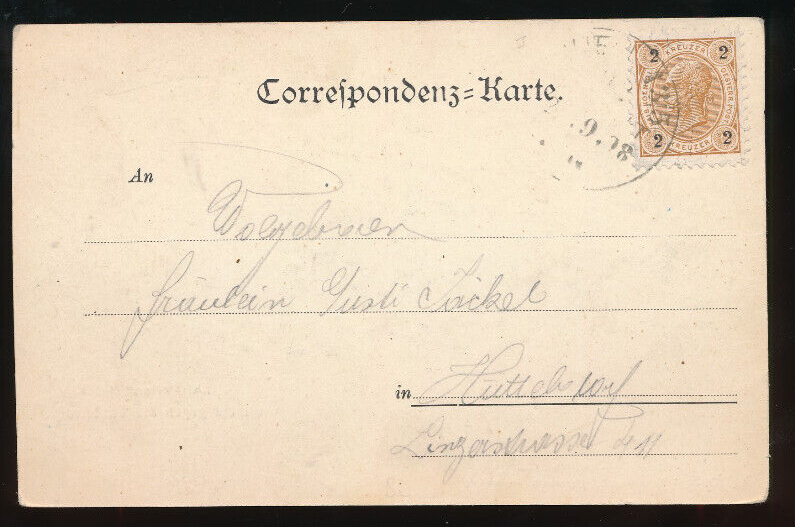 Correspondenz-Karte.
2 KREUZER 2
2 KREUZER 2
9.98
An
Wolgeboren
Fräulein Gusti Jäckel
in Hütteldorf
Linzerstrasse